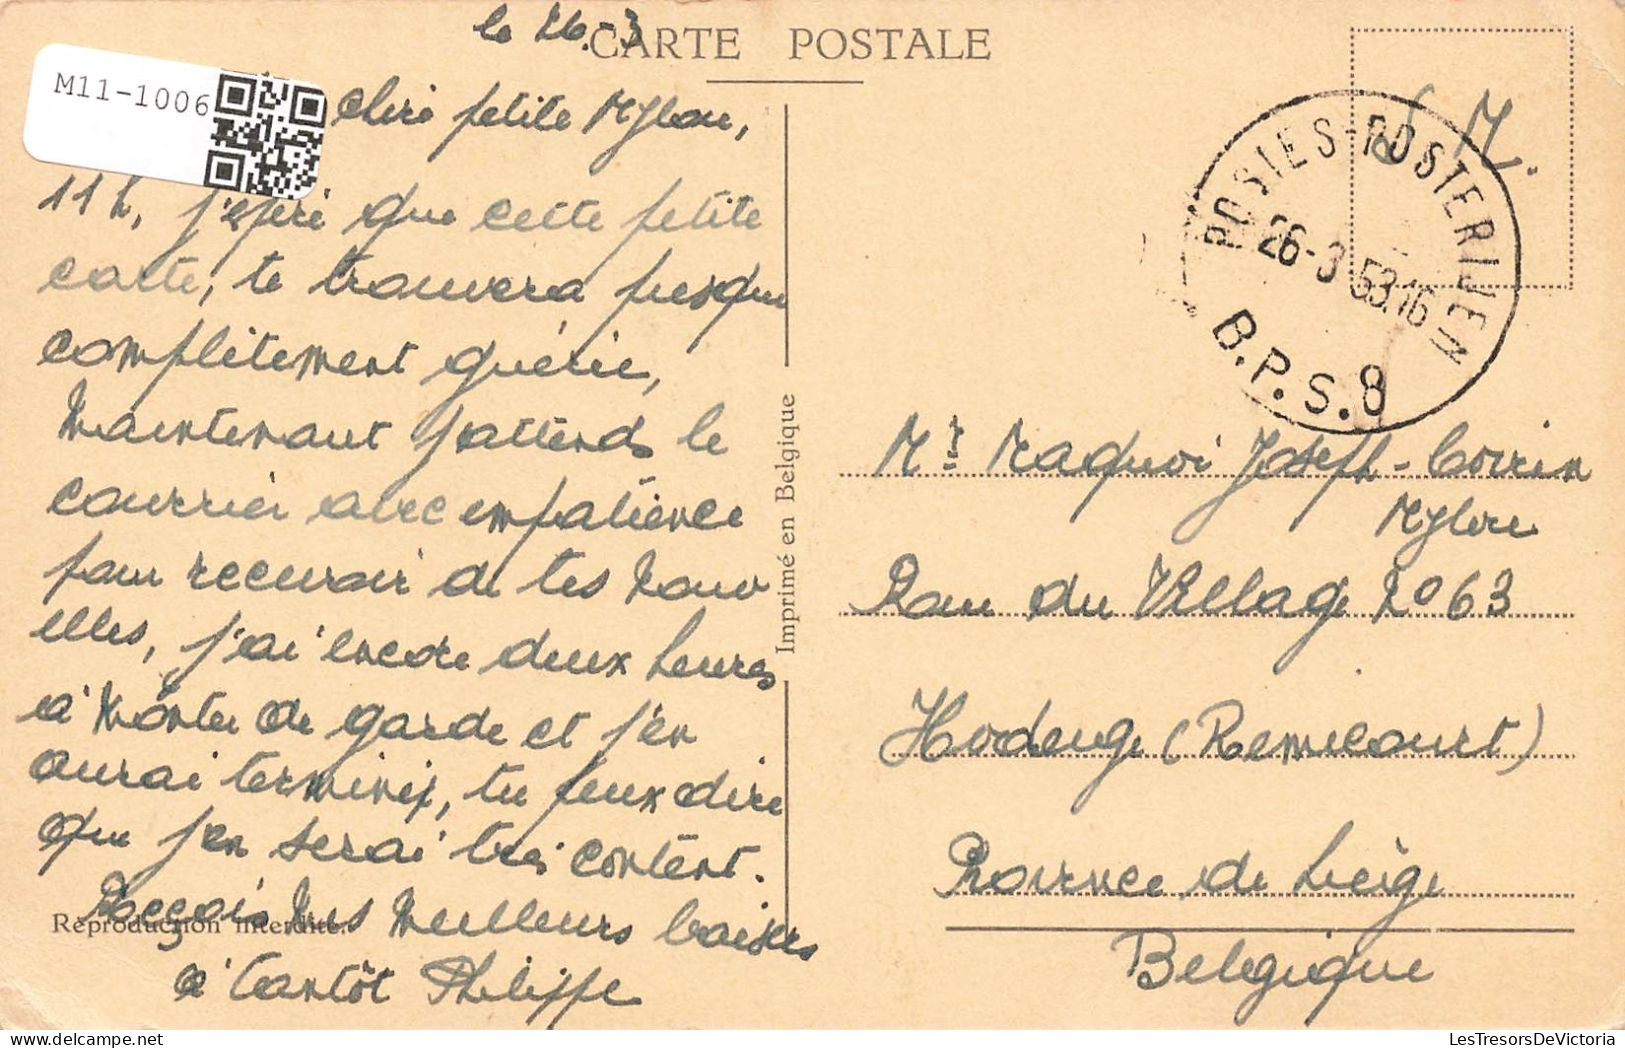 le 26-3
CARTE POSTALE
M11-1006
Chère petite
S.M.
POSTES-POSTERIJEN
26-3 53.16
B.P.S.8
11 h, j'espère que cette petite
carte, te trouvera presque
complètement guérie,
Maintenant j'attends le
courrier avec empatience
pour recevoir de tes nouv
elles, j'ai encore deux heures
à monter de garde et j'en
aurai terminer, tu peux dire
que j'en serai très contént.
Reçois mes meilleurs baisers
à tantôt Philippe
Reproduction interdite.
Imprimé en Belgique
Mr Maquoi Joseph-
Rau du Village No 63
Hodeuge (Remicourt)
Province de Liège
Belgique
LesTresorsDeVictoria